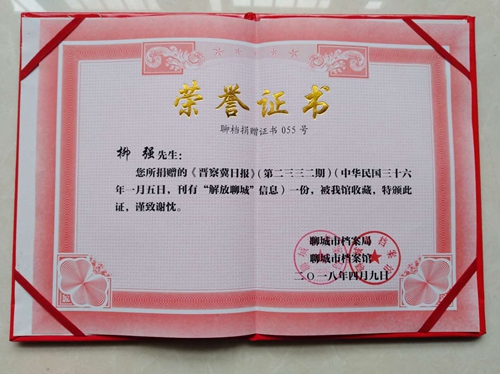 荣誉证书
聊档捐赠证书 055 号
柳 强先生:
您所捐赠的《晋察冀日报》(第二三三二期)(中华民国三十六
年一月五日,刊有“解放聊城”信息)一份,被我馆收藏,特颁此
证,谨致谢忱。
聊城市档案局
聊城市档案馆
二〇一八年四月九日